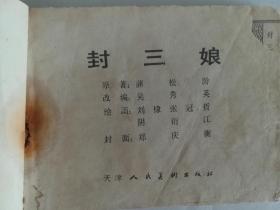 封三娘
原著：蒲松龄
改编：吴秀英
绘画：刘橡 张冠哲
阴衍江
封面：郑庆衡
天津人民美术出版社
封三